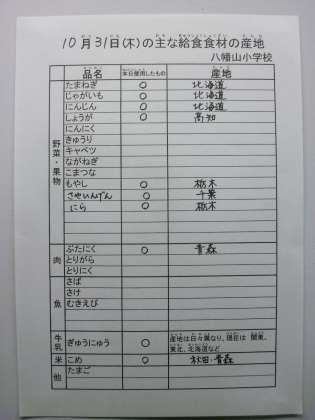 10月31日(木)の主な給食食材の産地
八幡山小学校
品名 本日使用したもの 産地
野菜・果物
たまねぎ ○ 北海道
じゃがいも ○ 北海道
にんじん ○ 北海道
しょうが ○ 高知
にんにく
きゅうり
キャベツ
ながねぎ
こまつな
もやし ○ 栃木
さやいんげん ○ 千葉
にら ○ 栃木
肉
ぶたにく ○ 青森
とりがら
とりにく
魚
さば
さけ
むきえび
牛乳 ぎゅうにゅう ○ 産地は日々異なり、現在は 関東、
東北、北海道など
米 こめ ○ 秋田・青森
他 たまご